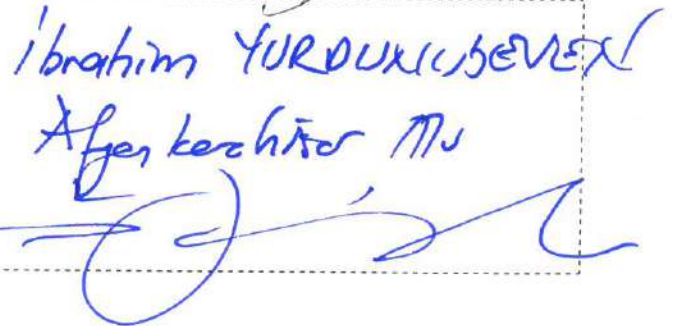 İbrahim YURDUNUSEVEN
Afyonkarahisar Mv